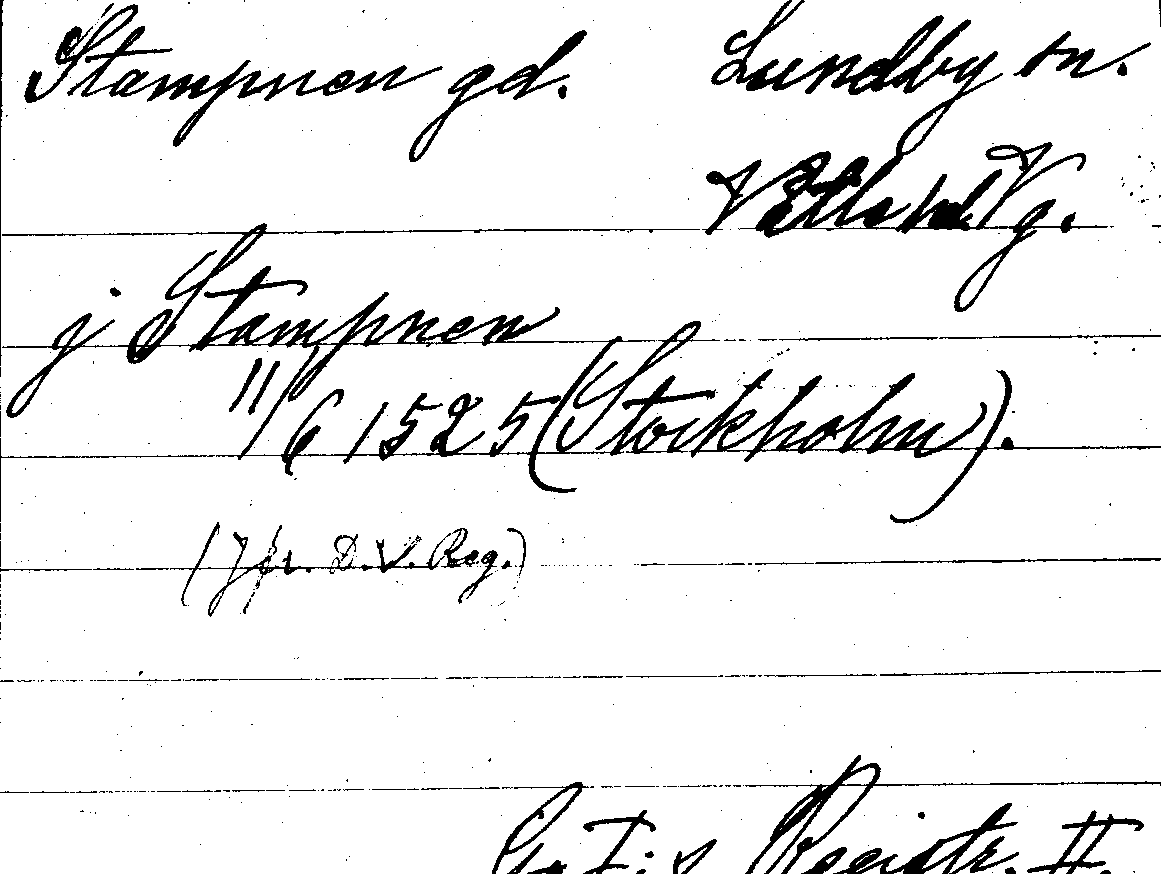 Stampnen gd. Lundby sn.
Vg.
j Stampnen
11/6 1525 (Stockholm).
(Jfr. D.V. Reg.)
G. I:s Registr. II.